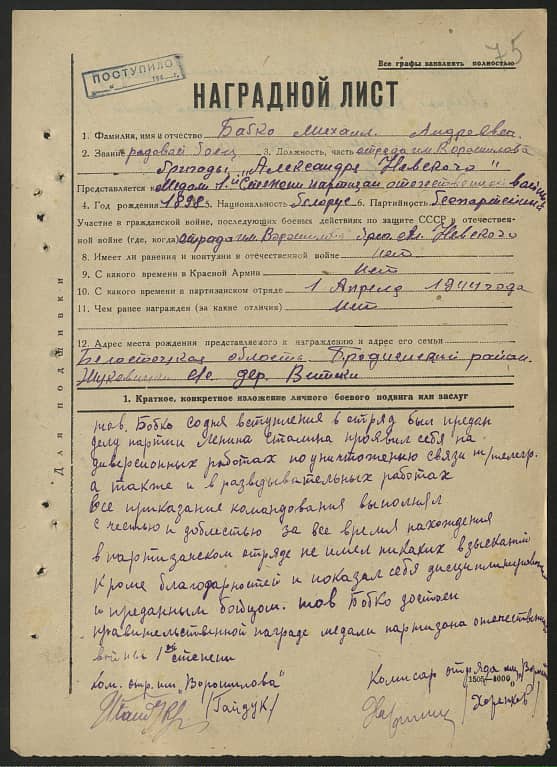 75
Все графы заполнять полностью
ПОСТУПИЛО
194 г.
НАГРАДНОЙ ЛИСТ
1. Фамилия, имя и отчество Бабко Михаил Андреевич
2. Звание рядовой боец 3. Должность, часть отряда им. Ворошилова
бригады „Александра Невского"
Представляется к Медали 1-й Степени партизан отечественной войны
4. Год рождения 1898 5. Национальность белорус 6. Партийность беспартейний
Участие в гражданской войне, последующих боевых действиях по защите СССР в отечествен-
ной войне (где, когда) отряда им. Ворошилова ал. Невского
8. Имеет ли ранения и контузии в отечественной войне нет
9. С какого времени в Красной Армии нет
10. С какого времени в партизанском отряде 1 Апреля 1944 года
11. Чем ранее награжден (за какие отличия) нет
12. Адрес места рождения представляемого к награждению и адрес его семьи
Белостоцкая область район
с/с дер.
Для подшивки
1. Краткое, конкретное изложение личного боевого подвига или заслуг
тов. Бобко со дня вступления в отряд был предан
делу партии Ленина Сталина проявил себя на
диверсионных работах по уничтожению связи т/телегр.
а также и в разведывательных работах
Все приказание командования выполнял
с честью и доблестью за все время нахождения
в партизанском отряде не имел никаких взысканий
Кроме благодарностей и показал себя
и преданным бойцом. тов Бобко достоен
правительственной награде медали партизана отечествен
войны 1ой степени
ком. отр. им „Ворошилова" Комисар отряда им. Ворош
/Гайдук/ /Хоренков/
1505—4000